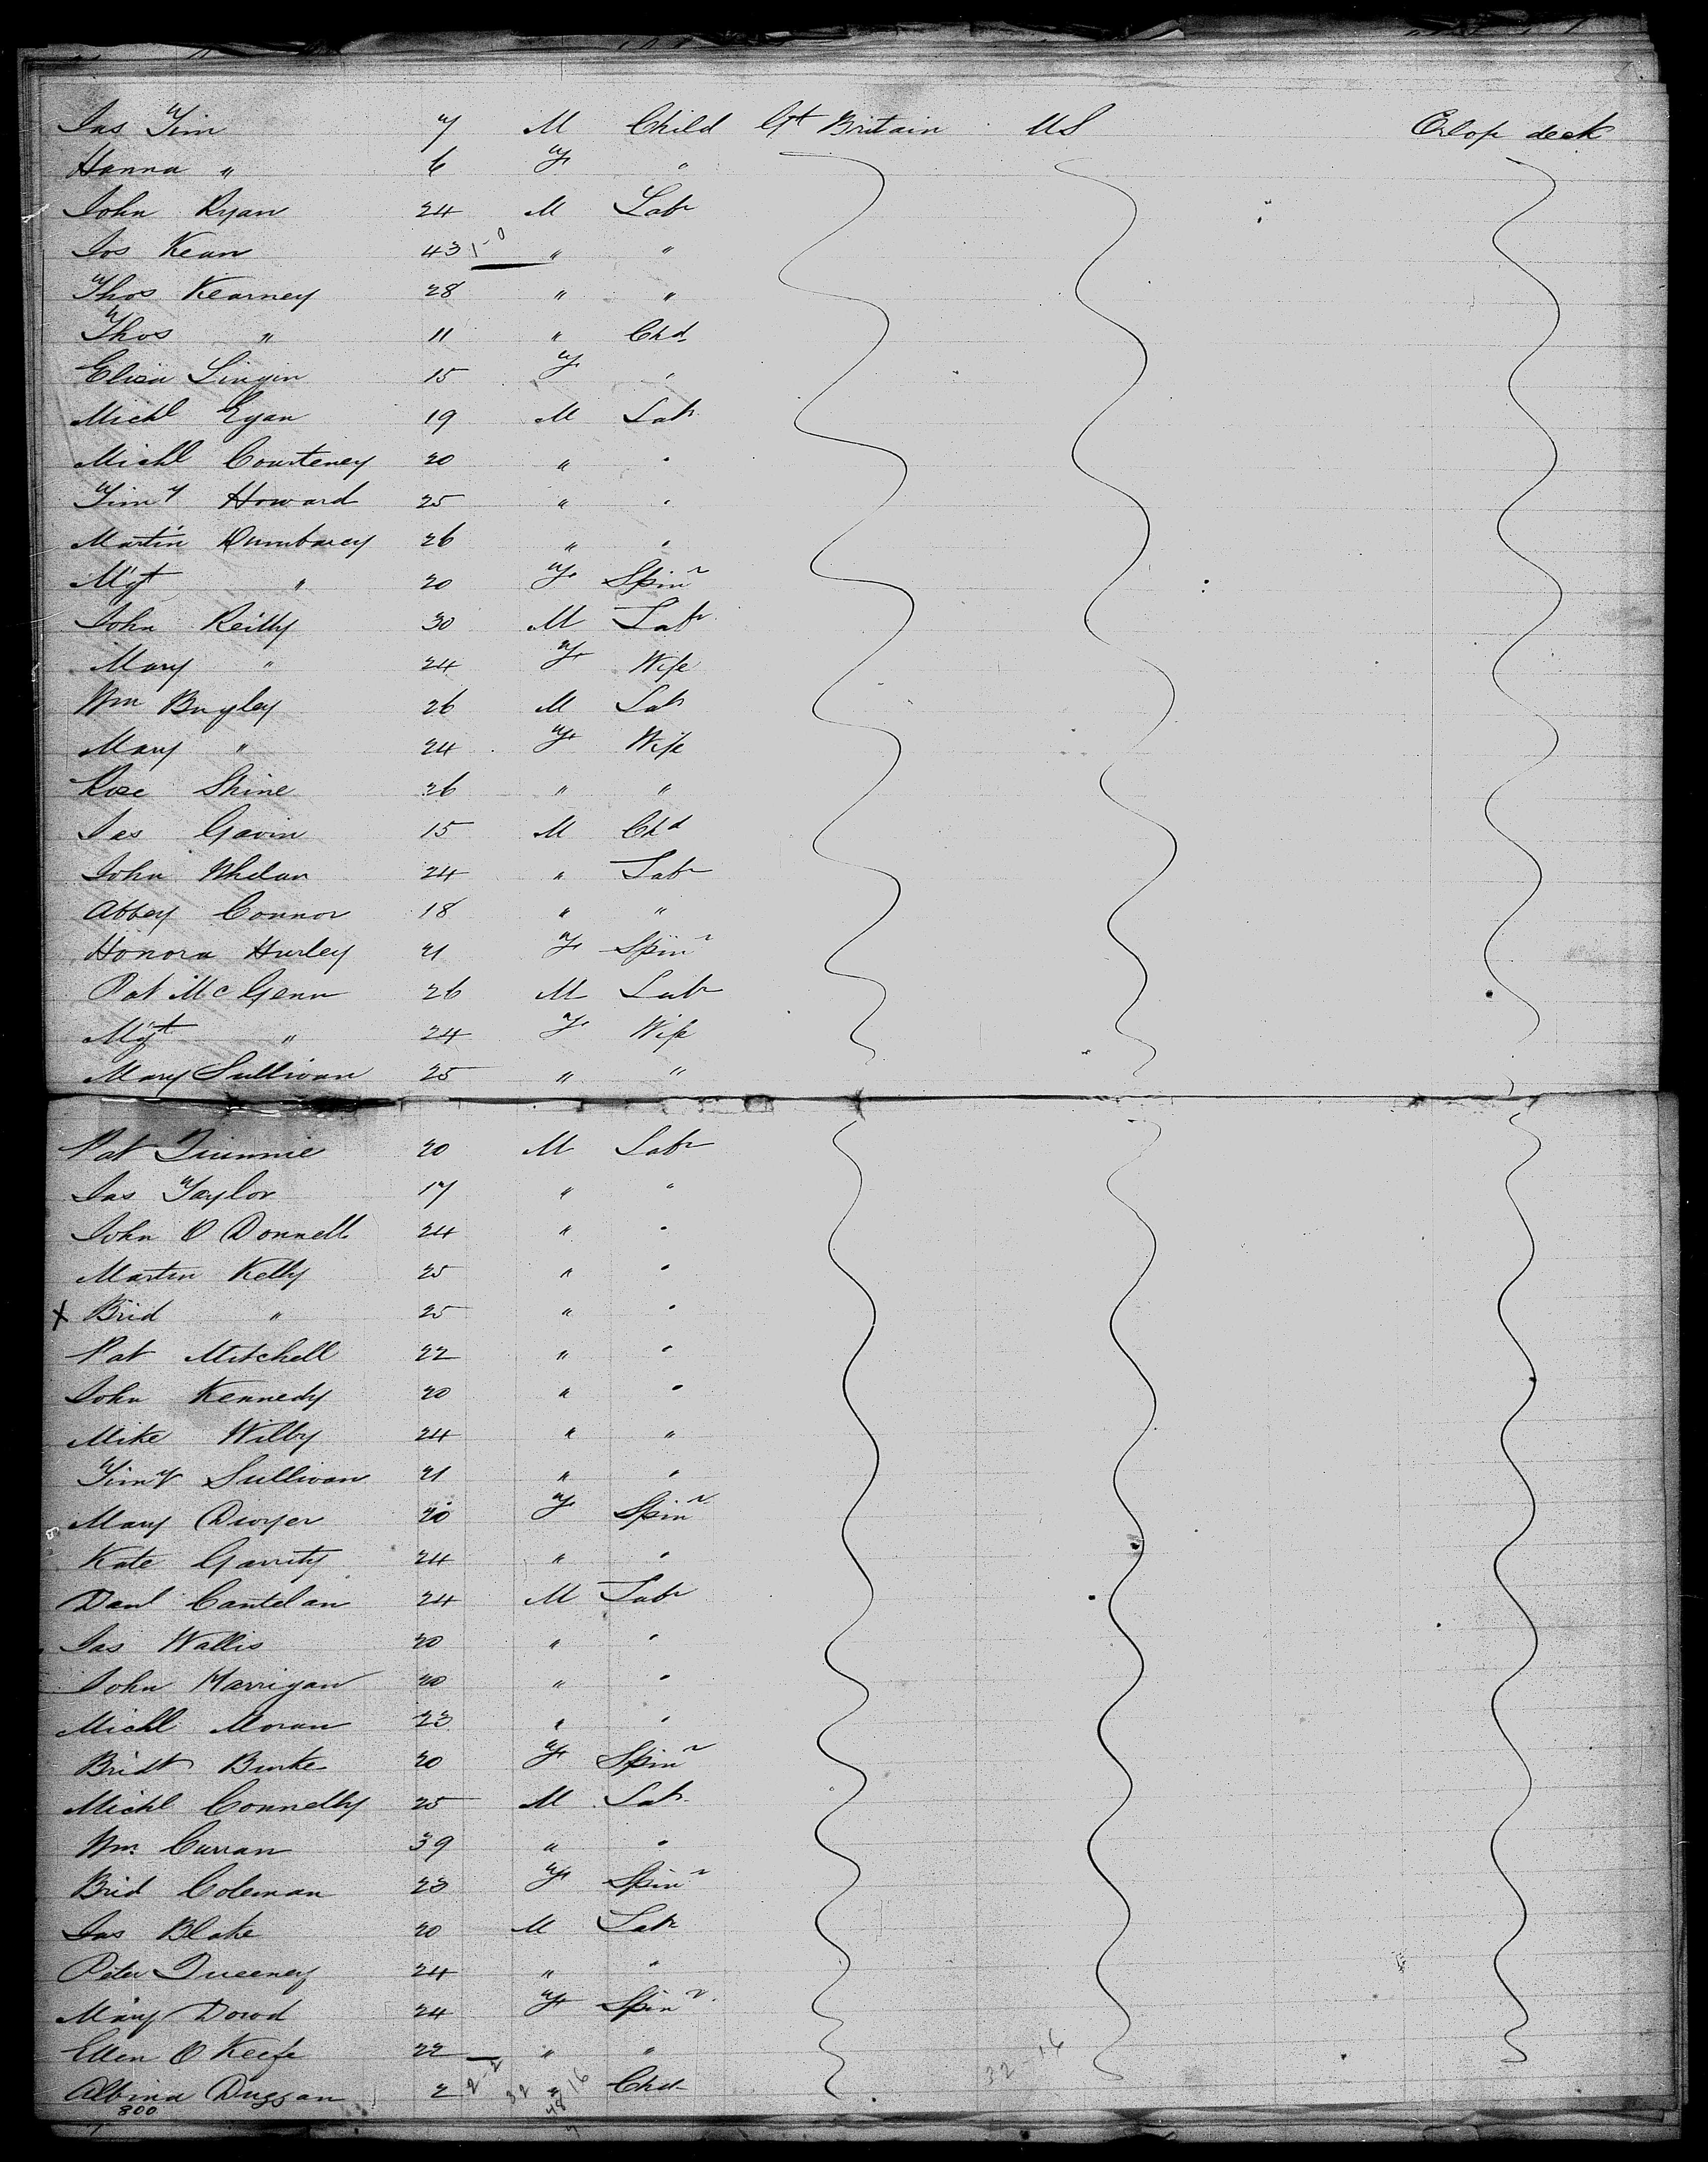 Jas Tim 7 M Child Gt Britain US Orlop deck
Hanna " 6 F "
John Ryan 24 M Labr
Jos Kean 43 1-0 " "
Thos Kearney 28 " "
Thos " 11 " Chd
Eliza 15 F "
Michl Egan 19 M Labr
Michl Courteney 20 " "
Timy Howard 25 " "
Martin 26 " "
Mgt " 20 F Spinr
John Reilly 30 M Labr
Mary " 24 F Wife
Wm Bugley 26 M Labr
Mary " 24 F Wife
Rose Shine 26 " "
Jas Gavin 15 M Chd
John Whelan 24 " Labr
Abbey Connor 18 " "
Honora Hurley 21 F Spinr
Pat McGenn 26 M Labr
Mgt " 24 F Wife
Mary Sullivan 25 " "
Pat 20 M Labr
Jas Taylor 17 " "
John O Donnell 24 " "
Martin Kelly 25 " "
X Brid " 25 " "
Pat Mitchell 22 " "
John Kennedy 20 " "
Mike Wilby 24 " "
Timy Sullivan 21 " "
Mary Dwyer 20 F Spinr
Kate Garrity 24 " "
Danl Cantelan 24 M Labr
Jas Wallis 20 " "
John Harrigan 20 " "
Michl Moran 23 " "
Bridt Burke 20 F Spinr
Michl Connelly 25 M Labr
Wm Curran 39 " "
Brid Coleman 23 F Spinr
Jas Blake 20 M Labr
Peter 24 " "
Mary Dowd 24 F Spinr
Ellen O Keefe 22 " "
Albina Duggan 2 2-2 32 " 16 Chd 32-16
800 48